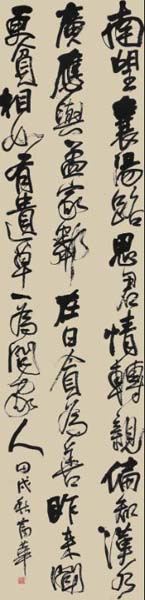 南望襄陽路思君情轉親偏知漢水
廣應與孟家鄰在日貪為善昨来聞
更貧相如有遺草一為問家人 甲戌秋